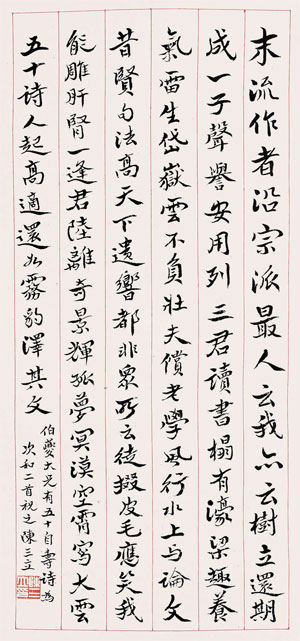 末流作者沿宗派最人云我亦云樹立還期
成一子聲譽安用列三君讀書榻有濠梁趣養
氣雷生岱嶽雲不負壯夫償老學風行水上與論文
昔賢句法高天下遺響都非眾所云徒掇皮毛應笑我
能雕肝腎一逢君陸離奇景輝孤夢冥漠空霄寫大雲
五十詩人起高適還如霧豹澤其文
伯夔大兄有五十自壽詩為
次和二首祝之陳三立